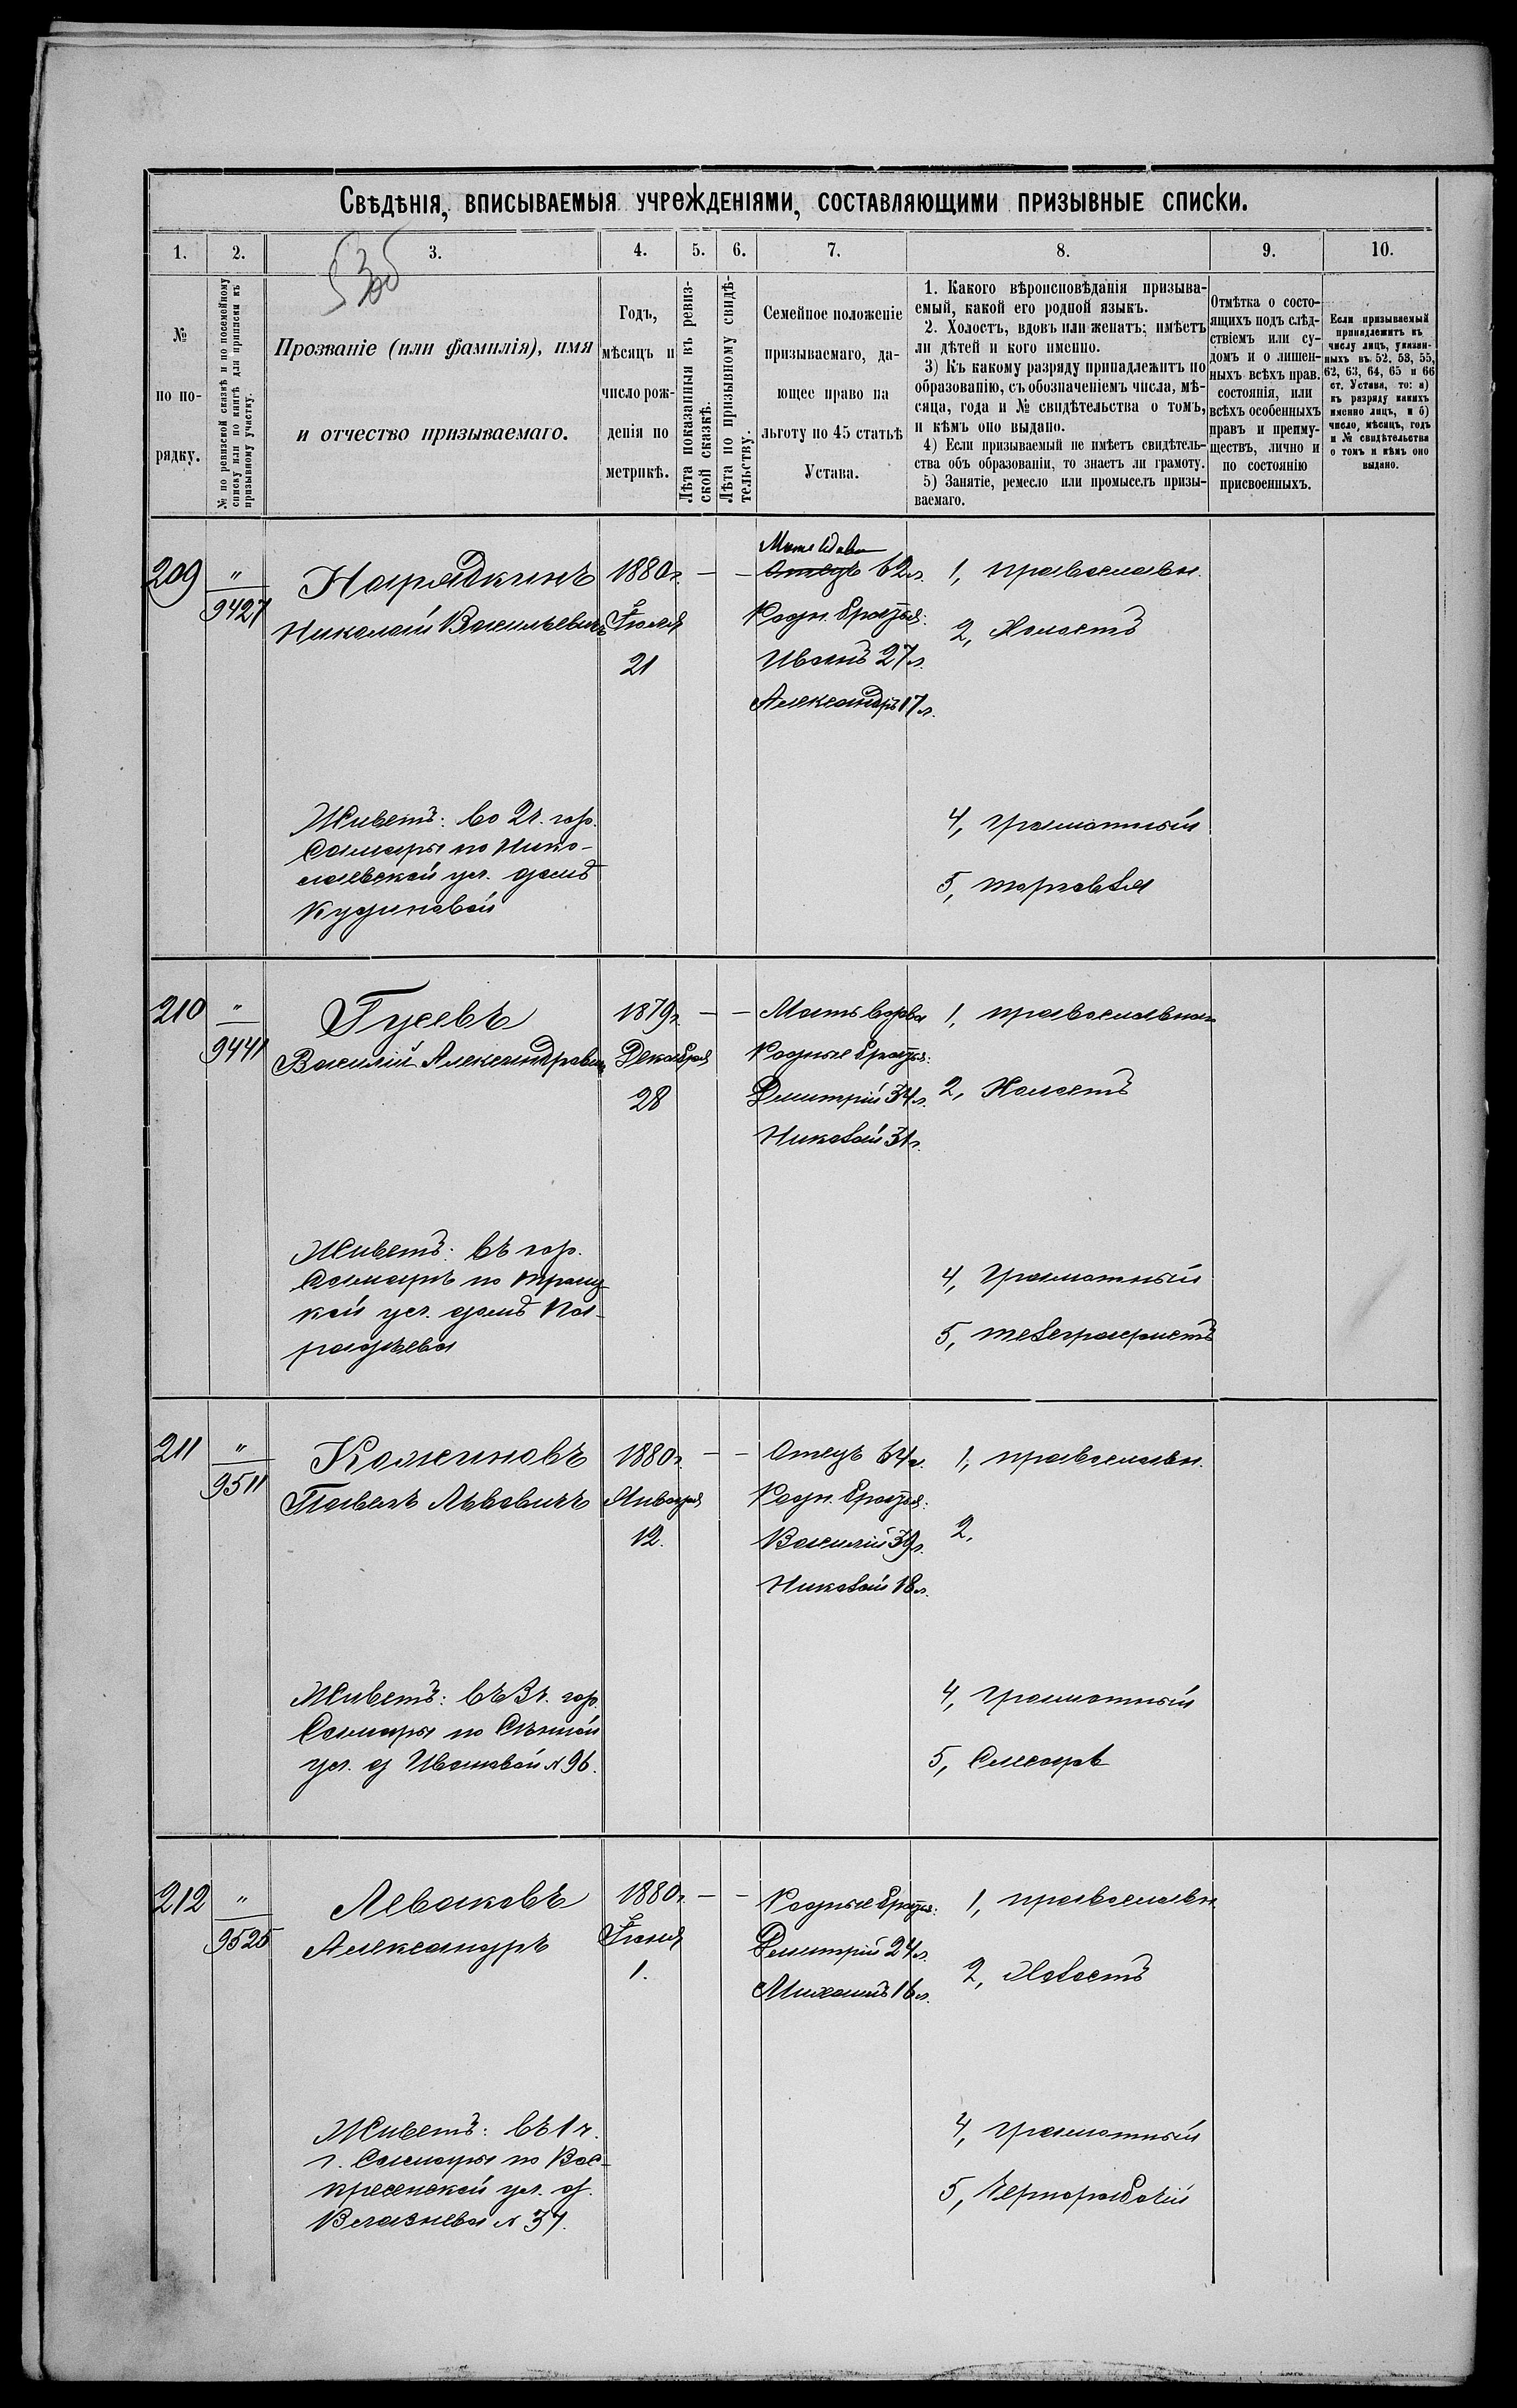 Свѣдѣнія, вписываемыя учрежденіями, составляющими призывные списки.
1. 2. 3. 4. 5. 6. 7. 8. 9. 10.
№
по по-
рядку.
№ по ревизской сказкѣ и по посемейному
списку или по книгѣ для приписки къ
призывному участку.
Прозваніе (или фамилія), имя
и отчество призываемаго.
Годъ,
мѣсяцъ и
число рож-
денія по
метрикѣ.
Лѣта показанныя въ ревиз-
ской сказкѣ.
Лѣта по призывному свидѣ-
тельству.
Семейное положеніе
призываемаго, да-
ющее право на
льготу по 45 статьѣ
Устава.
1. Какого вѣроисповѣданія призыва-
емый, какой его родной языкъ.
2. Холостъ, вдовъ или женатъ; имѣетъ
ли дѣтей и кого именно.
3) Къ какому разряду принадлежитъ по
образованію, съ обозначеніемъ числа, мѣ-
сяца, года и № свидѣтельства о томъ,
и кѣмъ оно выдано.
4) Если призываемый не имѣетъ свидѣтель-
ства объ образованіи, то знаетъ ли грамоту.
5) Занятіе, ремесло или промыселъ призы-
ваемаго.
Отмѣтка о состо-
ящихъ подъ слѣд-
ствіемъ или су-
домъ и о лишен-
ныхъ всѣхъ прав.
состоянія, или
всѣхъ особенныхъ
правъ и преиму-
ществъ, лично и
по состоянію
присвоенныхъ.
Если призываемый
принадлежитъ къ
числу лицъ, указан-
ныхъ въ 52, 53, 55,
62, 63, 64, 65 и 66
ст. Устава, то: а)
къ разряду какихъ
именно лицъ, и б)
число, мѣсяцъ, годъ
и № свидѣтельства
о томъ и кѣмъ оно
выдано.
209
"
9427
Нарядкинъ
Николай Васильевичъ
1880г.
Іюля
21
—
—
Мать вдова
Отецъ 62л.
Родн. братья:
Иванъ 27л.
Александръ 17л.
1, православн.
2, Холостъ
Живетъ: во 2ч. гор.
Самары по Нико-
лаевской ул. домъ
Кудиновой
4, грамотный
5, торговля
210
"
9441
Гусевъ
Василій Александровичъ
1879г.
Декабря
28
—
—
Мать вдова
Родные братья:
Дмитрій 34л.
Николай 31г.
1, православнаго
2, Холостъ
Живетъ: въ гор.
Самарѣ по Троиц
кой ул. домъ
4, Грамотный
5, телеграфистъ
211
"
9511
Кожиновъ
Павелъ Львовичъ
1880г.
Января
12.
—
—
Отецъ 64л.
Родн. братья:
Василій 39л.
Николай 18л.
1, православн.
2,
Живетъ: въ 3ч. гор.
Самары по Сѣнной
ул. д Ивановой № 96.
4, грамотный
5, Слесарь
212
"
9525
Леваковъ
Александръ
1880г.
Іюня
1.
—
—
Родные братья:
Дмитрій 24л.
Михаилъ 16л.
1, православн.
2, Холостъ
Живетъ: въ 1ч.
г. Самары по Вос-
кресенской ул. д.
4, грамотный
5, Чернорабочій